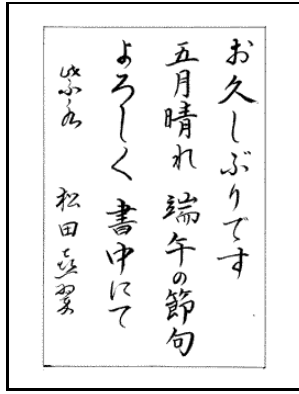 お久しぶりです
五月晴れ 端午の節句
よろしく 書中にて
松田